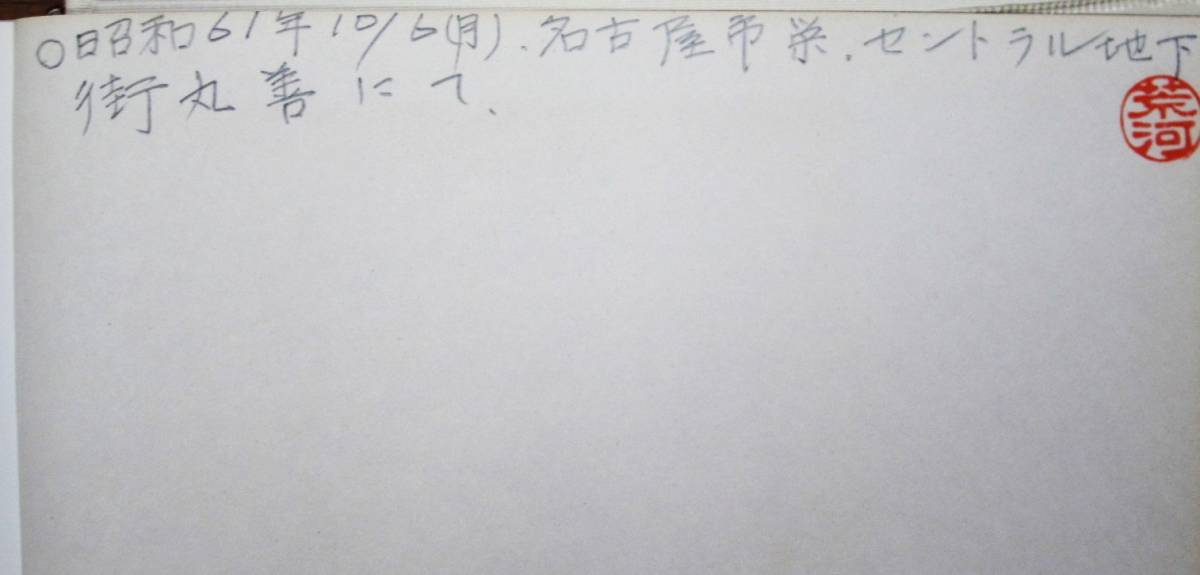 ○昭和61年10/6(月).名古屋市栄.セントラル地下
街丸善にて.
荒河